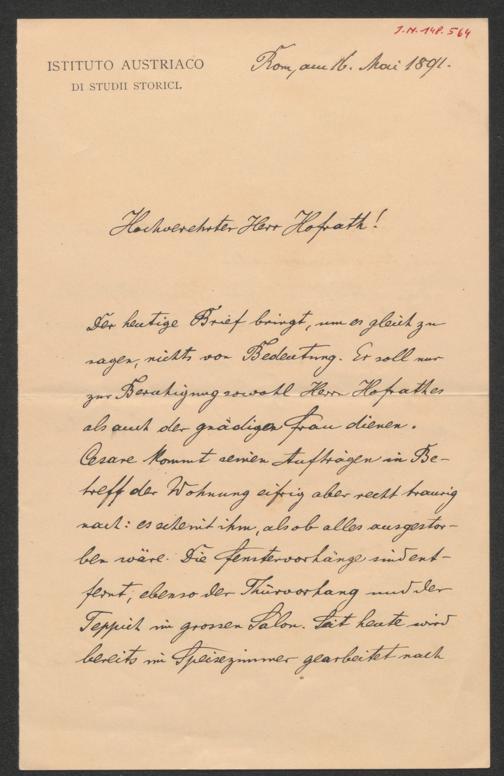 J.N. 148.564
ISTITUTO AUSTRIACO
DI STUDII STORICI.
Rom, am 16. Mai 1891.
Hochverehrter Herr Hofrath!
Der heutige Brief bringt, um es gleich zu
sagen, nichts von Bedeutung. Er soll nur
zur Beruhigung sowohl Herrn Hofrathes
als auch der gnädigen Frau dienen.
Cesare kommt seinen Aufträgen in Be-
treff der Wohnung eifrig aber recht traurig
nach: es scheint ihm, als ob alles ausgestor-
ben wäre. Die Fenstervorhänge sind ent-
fernt, ebenso der Thürvorhang und der
Teppich im grossen Salon. Seit heute wird
bereits im Speisezimmer gearbeitet nach